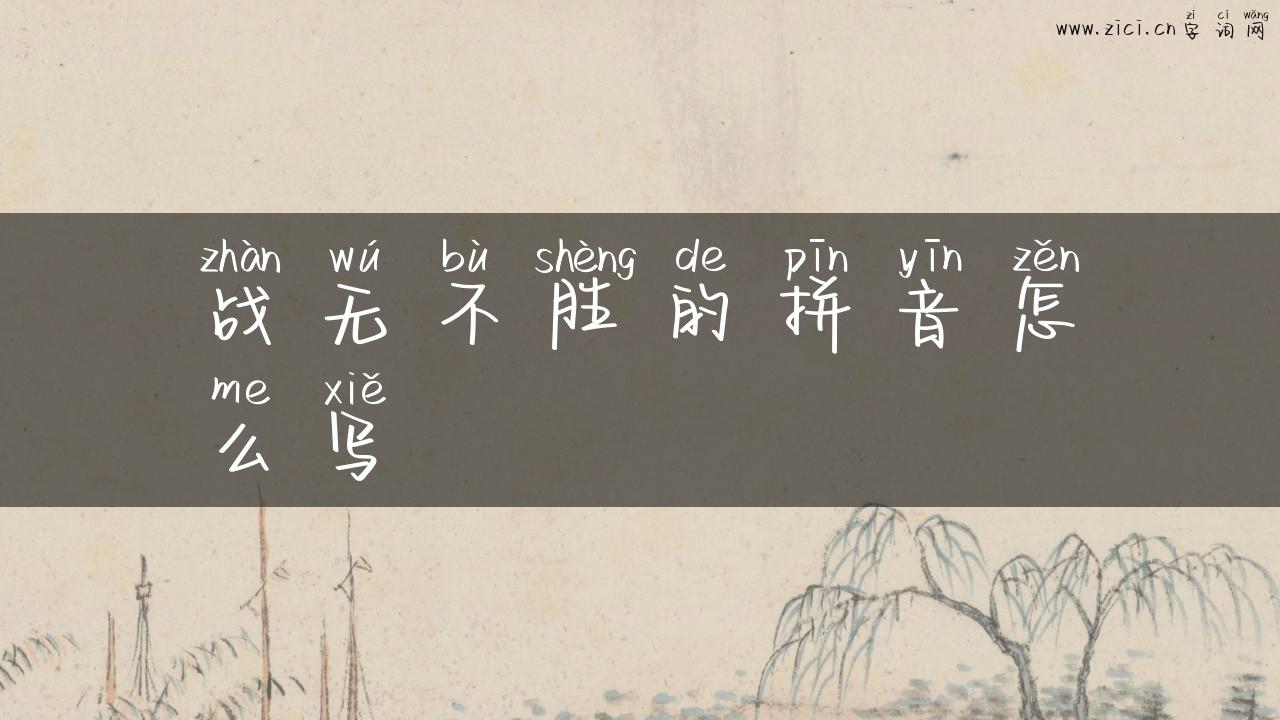 zì cí wǎng
www.zici.cn 字 词 网
zhàn wú bù shèng de pīn yīn zěn
战 无 不 胜 的 拼 音 怎
me xiě
么 写